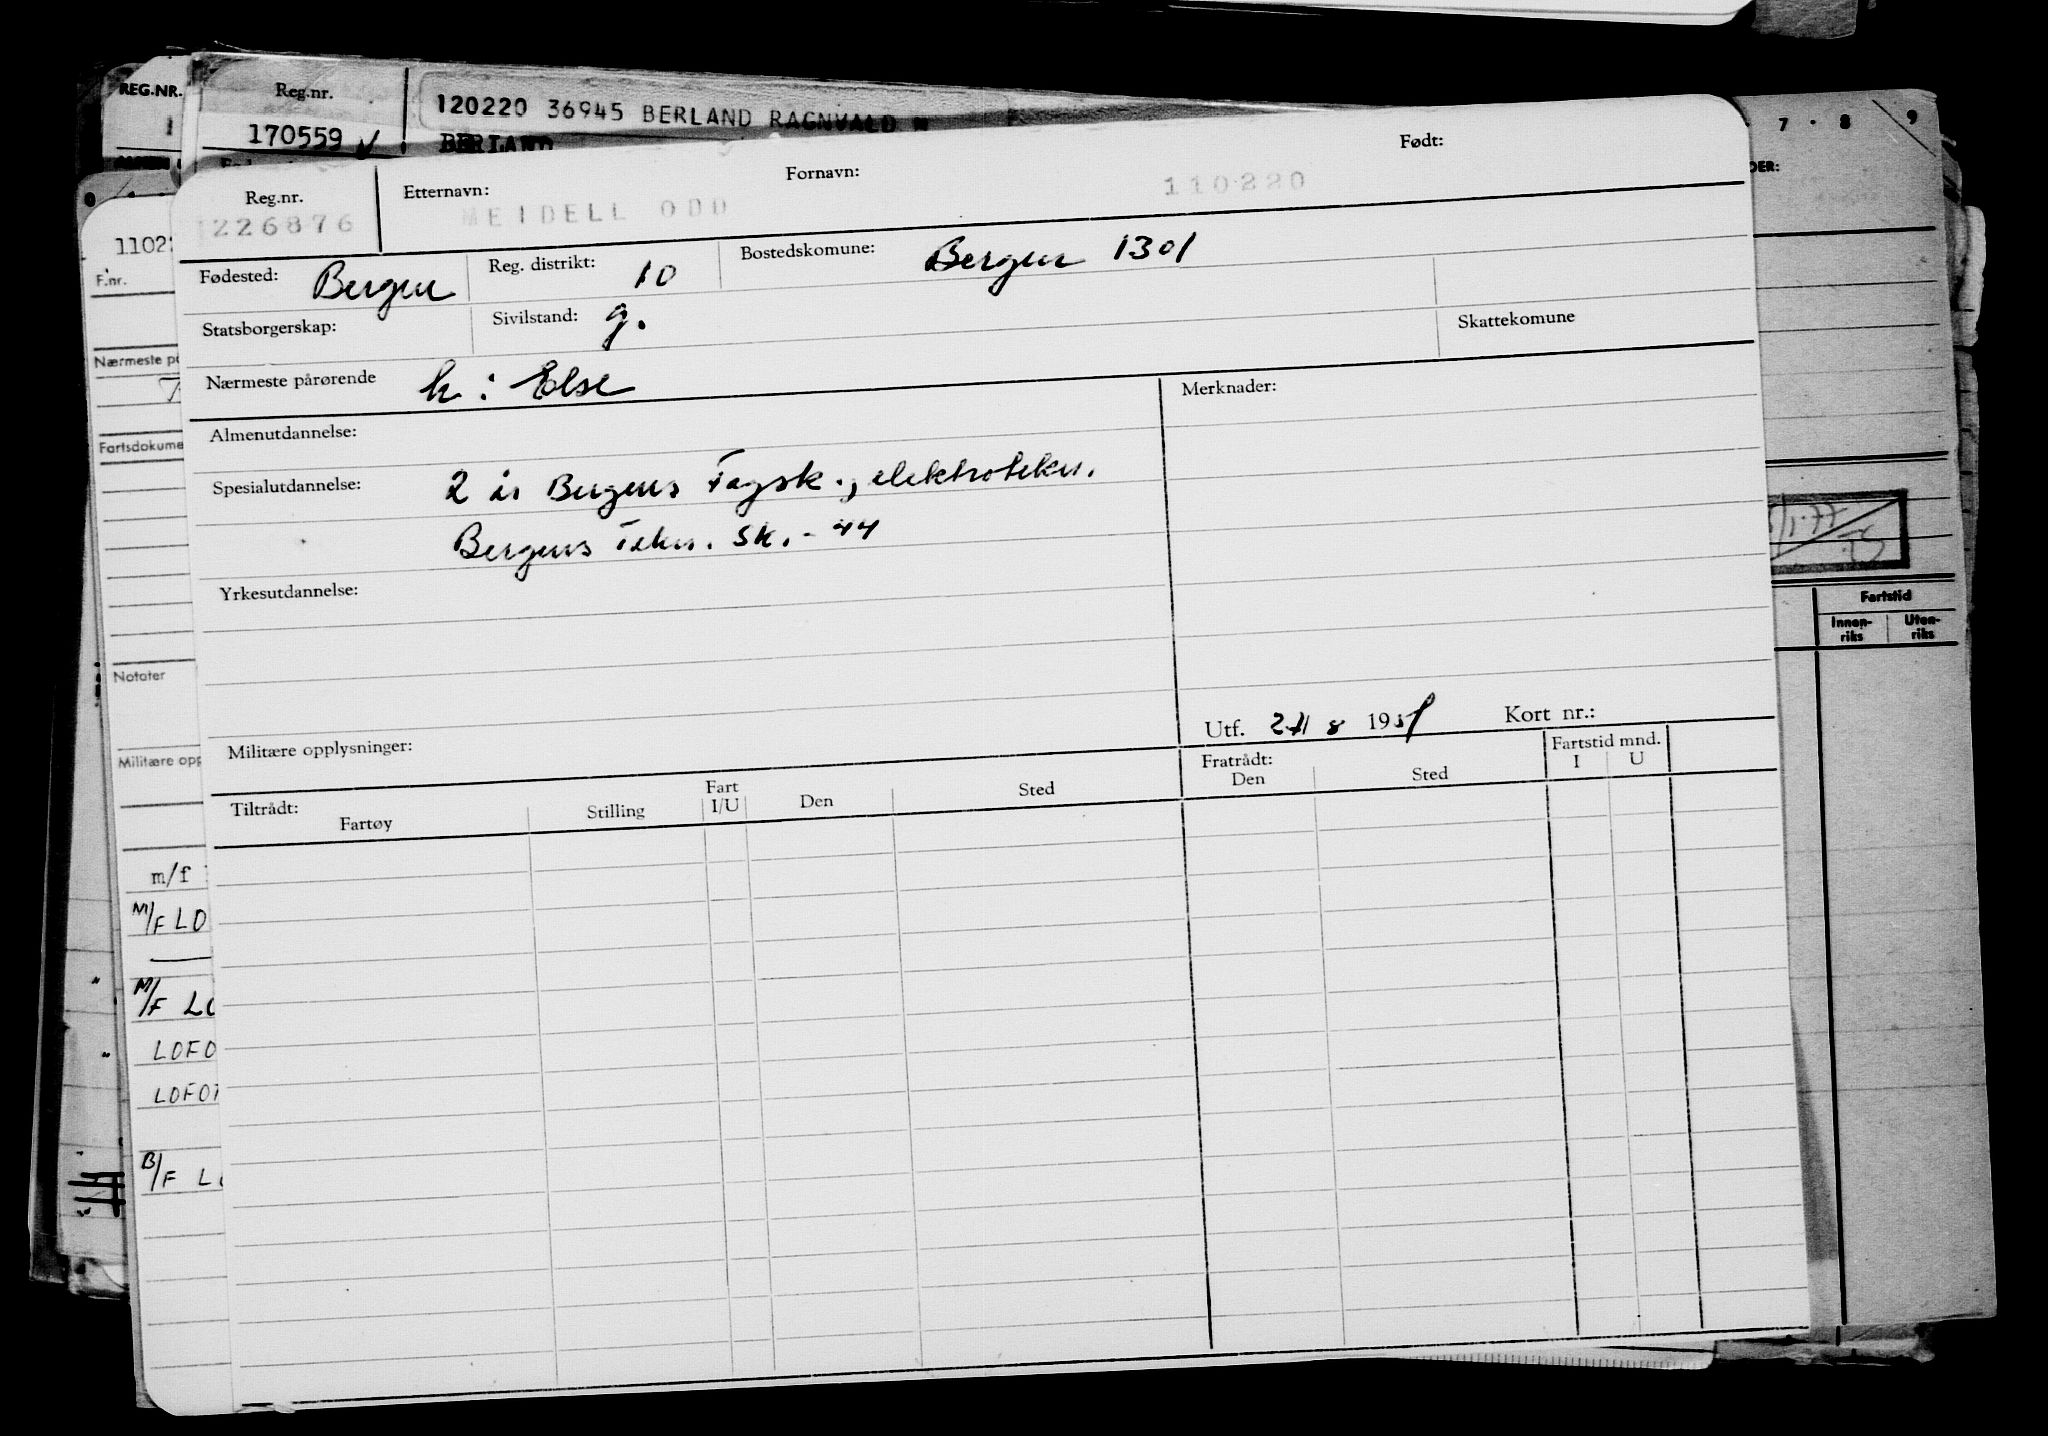 REG.NR.
Reg.nr.
170559 ✓
120220 36945 BERLAND RAGNVALD
BERLAND
7 · 8 9
Reg.nr.
226876
Etternavn:
MEIDELL ODD
Fornavn:
110220
Født:
Fødested: Bergen
Reg. distrikt: 10
Bostedskomune: Bergen 1301
Statsborgerskap:
Sivilstand: g.
Skattekomune
Nærmeste pårørende h: Else
Merknader:
Almenutdannelse:
Spesialutdannelse: 2 år Bergens Fagsk., elektrotekn.
Bergens Tekn. Sk. - 44
Yrkesutdannelse:
Militære opplysninger:
Utf. 8 19
Kort nr.:
Tiltrådt:
Fartøy
Stilling
Fart
I/U
Den
Sted
Fratrådt:
Den
Sted
Fartstid mnd.
I U
F.nr.
Nærmeste
Notater
Militære
m/f
M/F LO
M/F LO
LOFO
LOFOT
B/F L
Fartstid
Innen-
riks
Uten-
riks